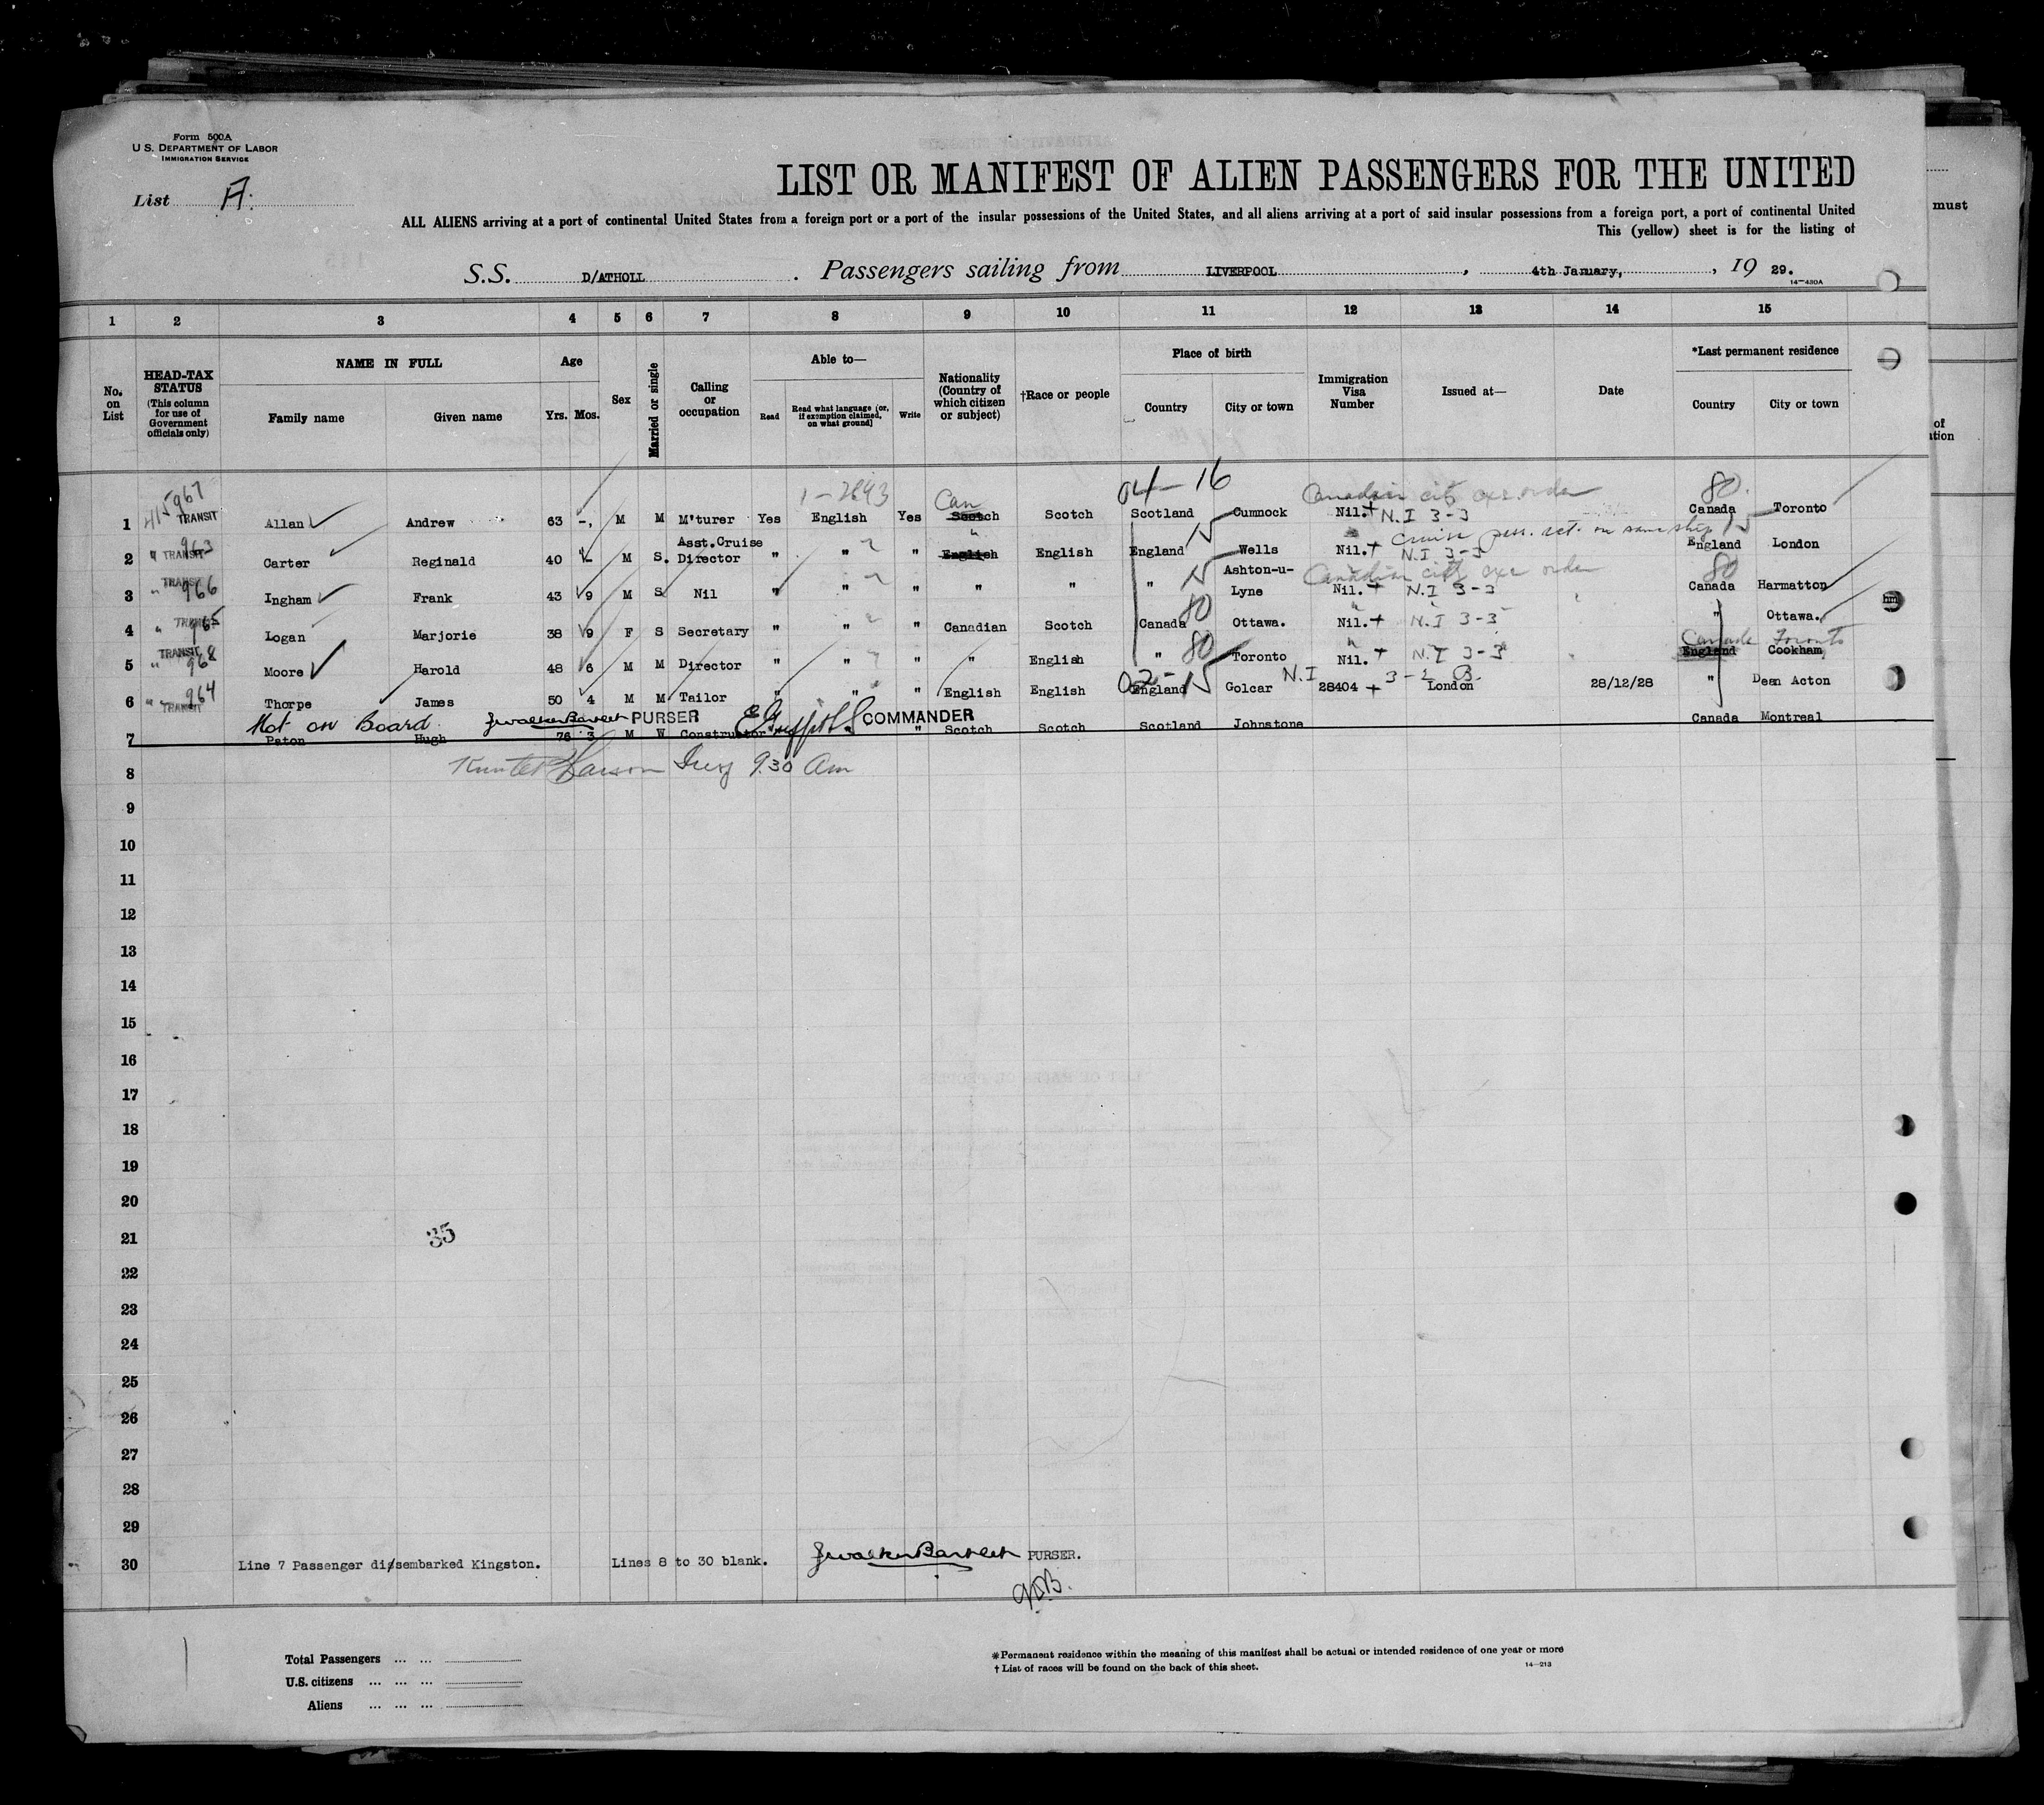 Form 500A
U. S. DEPARTMENT OF LABOR
IMMIGRATION SERVICE
List A.
LIST OR MANIFEST OF ALIEN PASSENGERS FOR THE UNITED
ALL ALIENS arriving at a port of continental United States from a foreign port or a port of the insular possessions of the United States, and all aliens arriving at a port of said insular possessions from a foreign port, a port of continental United
This (yellow) sheet is for the listing of
must
S.S. D/ATHOLL . Passengers sailing from LIVERPOOL , 4th January, , 19 29.
14—430A
1 2 3 4 5 6 7 8 9 10 11 12 13 14 15
No. on List
HEAD-TAX STATUS (This column for use of Government officials only)
NAME IN FULL
Family name Given name
Age
Yrs. Mos.
Sex
Married or single
Calling or occupation
Able to—
Read Read what language [or, if exemption claimed, on what ground] Write
Nationality (Country of which citizen or subject)
†Race or people
Place of birth
Country City or town
Immigration Visa Number
Issued at—
Date
*Last permanent residence
Country City or town
of
967 1-2693 Can 04-16 80
1 TRANSIT Allan Andrew 63 -, M M M'turer Yes English Yes Scotch Scotch Scotland Cumnock Nil. + N.I 3-3 Canada Toronto
963 Cruise pass. ret. on same ship 15
2 " TRANSIT Carter Reginald 40 - M S. Asst. Cruise Director " " " English English England 15 Wells Nil. + N.I 3-3 England London
3 " TRANSIT 966 Ingham Frank 43 9 M S Nil " " " " " " 15 Ashton-u-Lyne Nil. + N.I 3-3 80 Canada Harmatton
4 " TRANSIT 965 Logan Marjorie 38 9 F S Secretary " " " Canadian Scotch Canada 80 Ottawa. Nil. + N.I 3-3 " Ottawa.
5 " TRANSIT 968 Moore Harold 48 6 M M Director " " " " English " 80 Toronto Nil. + N.I 3-3 England Cookham Canada Toronto
6 " TRANSIT 964 Thorpe James 50 4 M M Tailor " " " English English 02- England 15 Golcar N.I 28404 + 3-2 B. London 28/12/28 " Dean Acton
Not on Board. J Walker Bartlett PURSER COMMANDER
7 Paton Hugh 76 3 M W Constructor " Scotch Scotch Scotland Johnstone Canada Montreal
8 9.30 Am
9
10
11
12
13
14
15
16
17
18
19
20
21 35
22
23
24
25
26
27
28
29
30 Line 7 Passenger disembarked Kingston. Lines 8 to 30 blank. J Walker Bartlett PURSER.
Total Passengers ... ...
U.S. citizens ... ... ...
Aliens ... ... ...
*Permanent residence within the meaning of this manifest shall be actual or intended residence of one year or more
† List of races will be found on the back of this sheet.
14—213